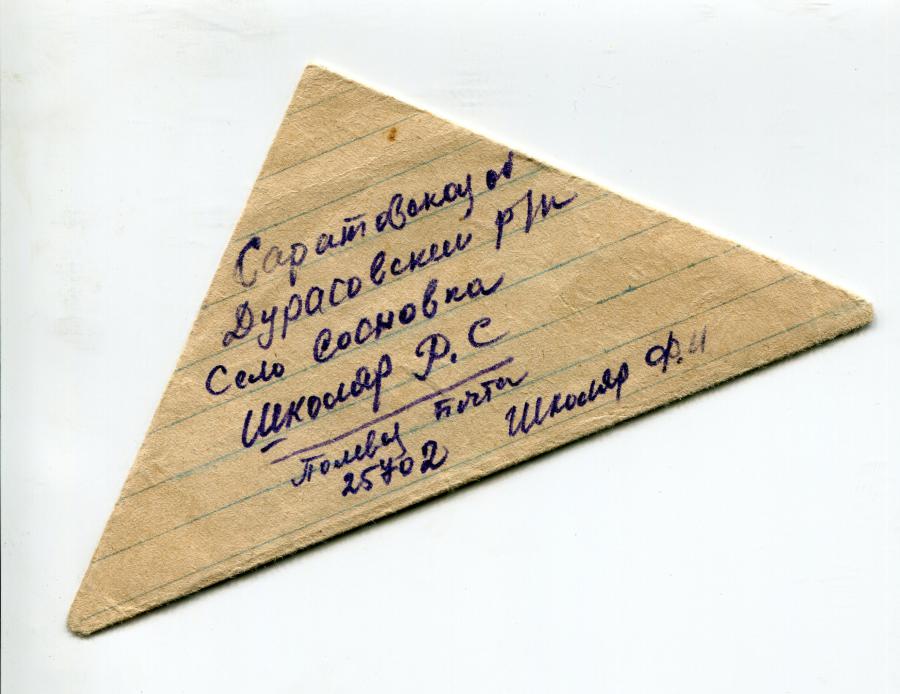 Саратовской об
Дурасовский р/н
Село Сосновка
Школяр Р. С
Полевая почта
25702 Школяр Ф.И